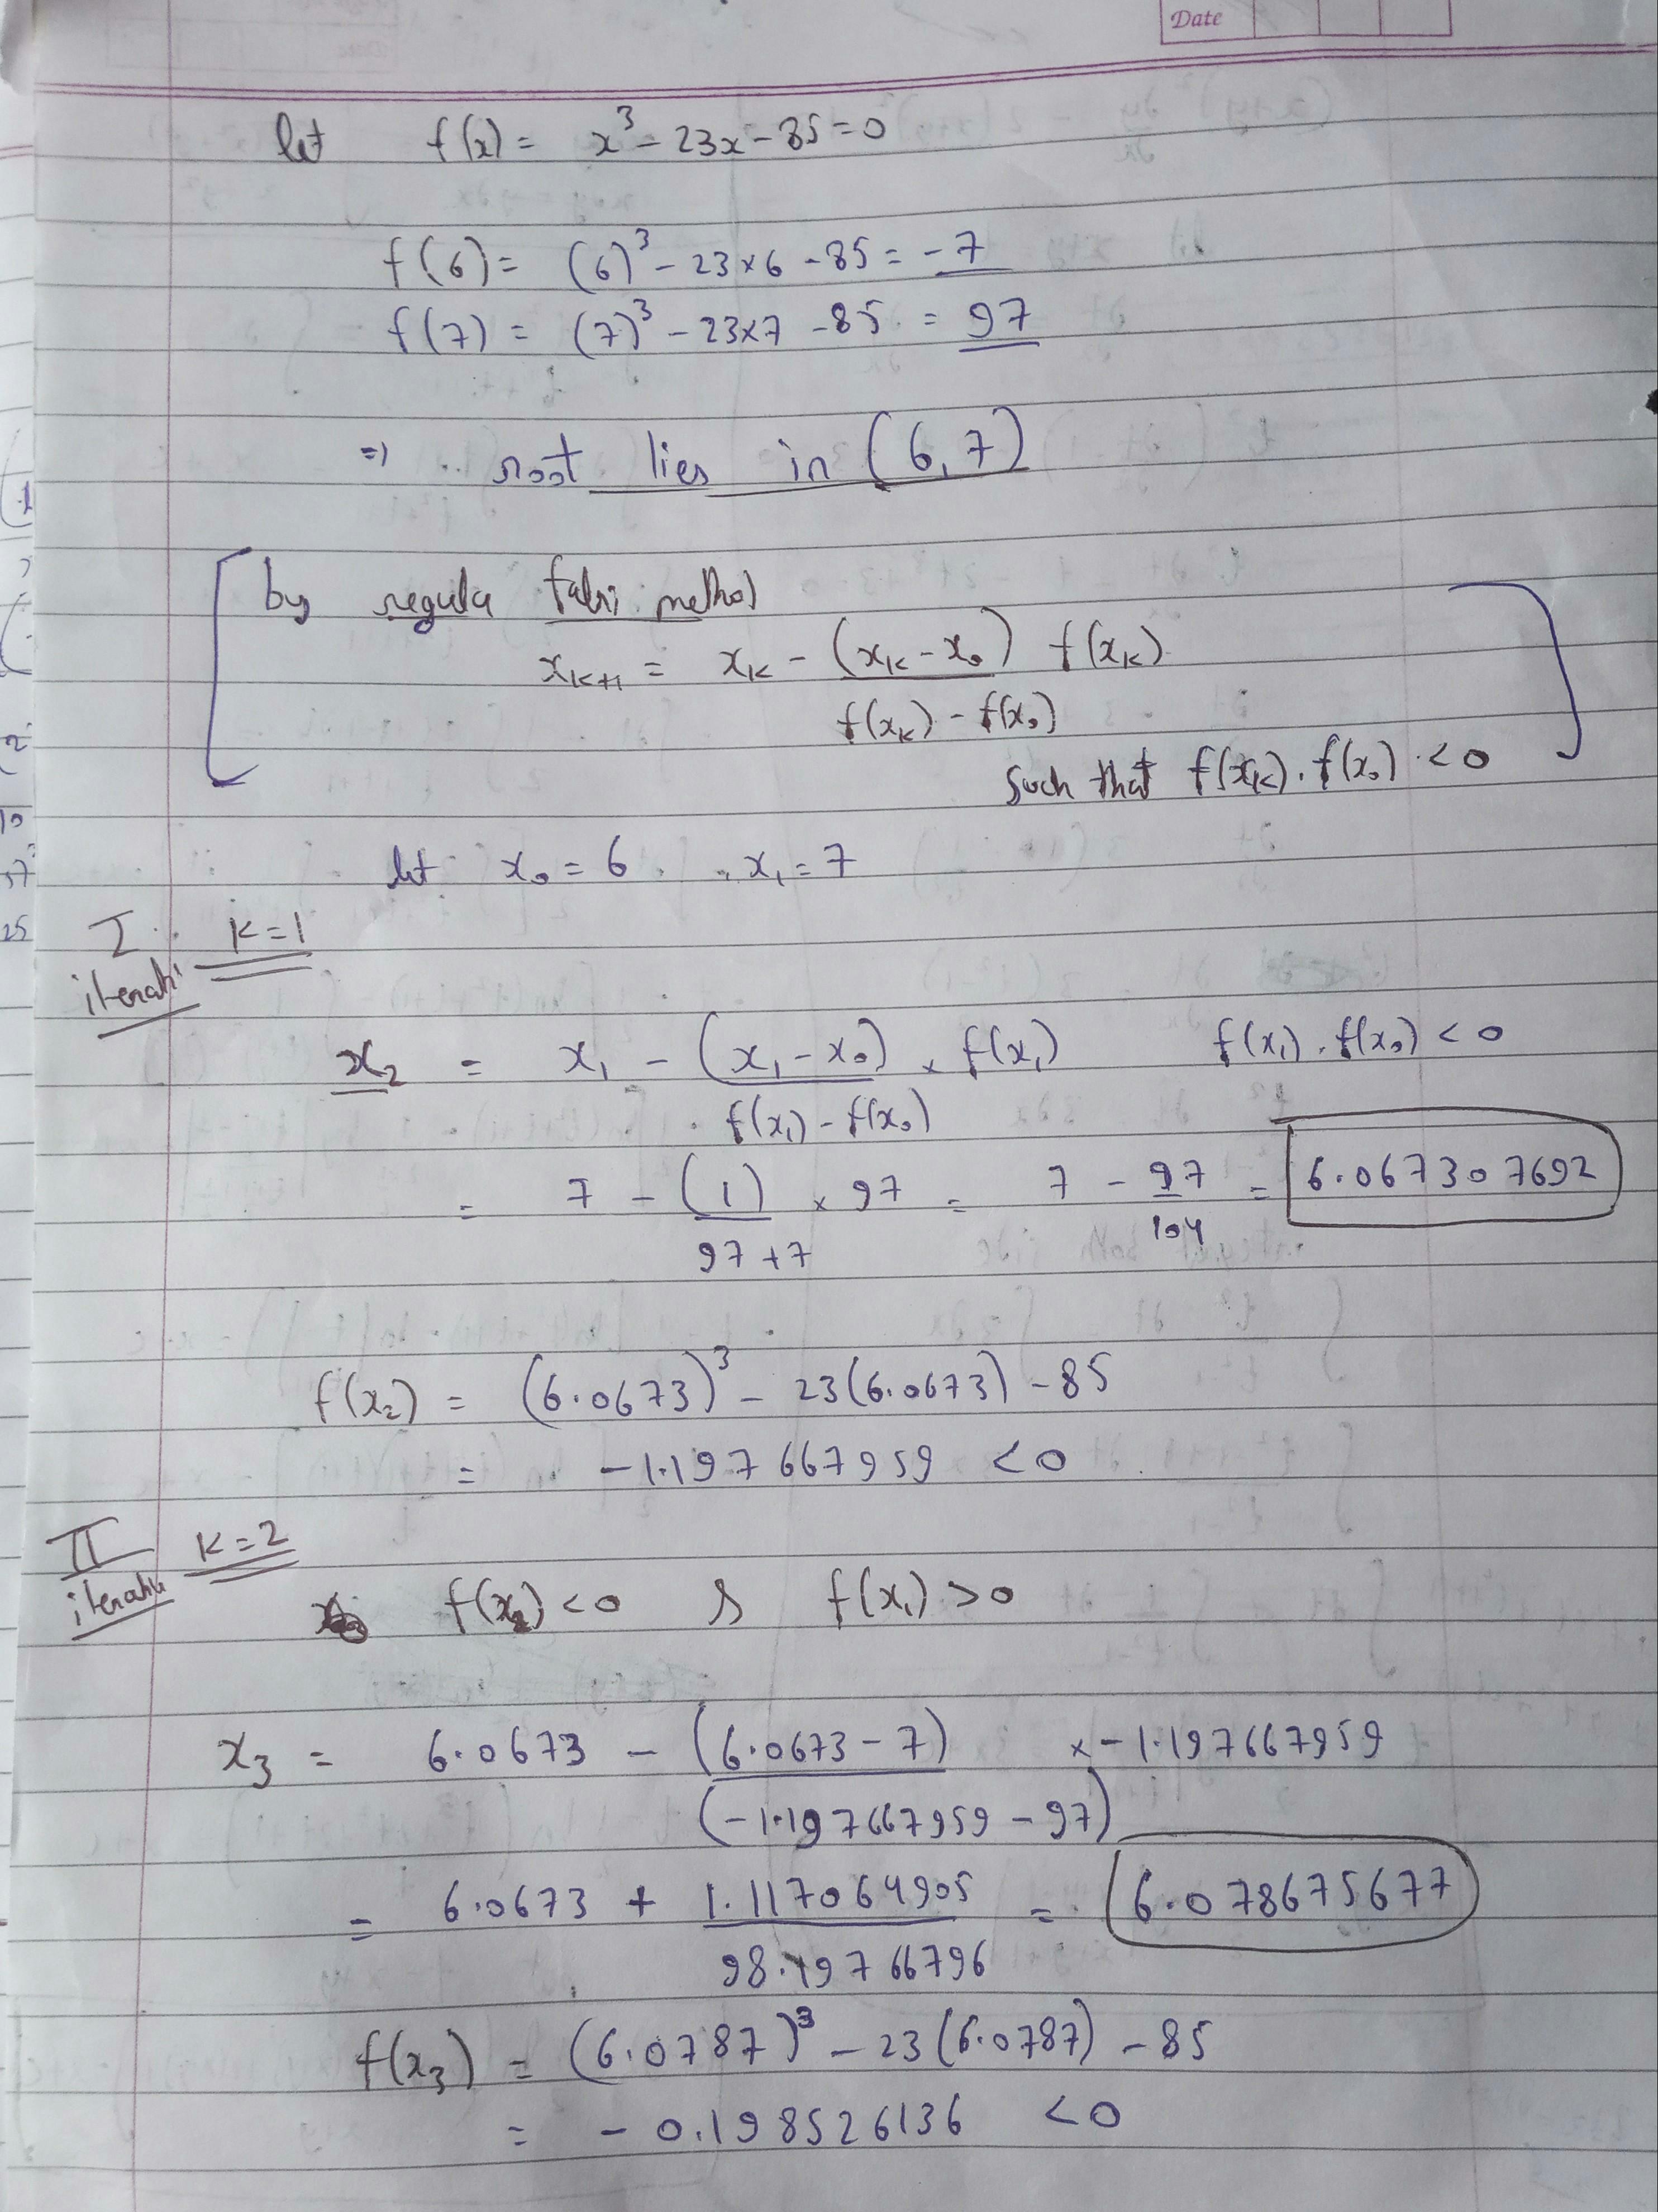 Date
let f(x) = x³ - 23x - 85 = 0
f(6) = (6)³ - 23×6 - 85 = -7
f(7) = (7)³ - 23×7 - 85 = 97
⇒ root lies in (6, 7)
by regula falsi method
x_{k+1} = x_k - (x_k - x_0) f(x_k)
f(x_k) - f(x_0)
such that f(x_k) . f(x_0) < 0
let x_0 = 6 , x_1 = 7
I k=1
iterati
x_2 = x_1 - (x_1 - x_0) × f(x_1) f(x_1) . f(x_0) < 0
f(x_1) - f(x_0)
= 7 - (1) × 97 = 7 - 97 = 6.067307692
97 + 7 104
f(x_2) = (6.0673)³ - 23(6.0673) - 85
= -1.197667959 < 0
II k=2
iteratio
f(x_2) < 0 & f(x_1) > 0
x_3 = 6.0673 - (6.0673 - 7) × -1.197667959
(-1.197667959 - 97)
= 6.0673 + 1.117064905 = 6.078675677
98.19766796
f(x_3) = (6.0787)³ - 23(6.0787) - 85
= -0.198526136 < 0